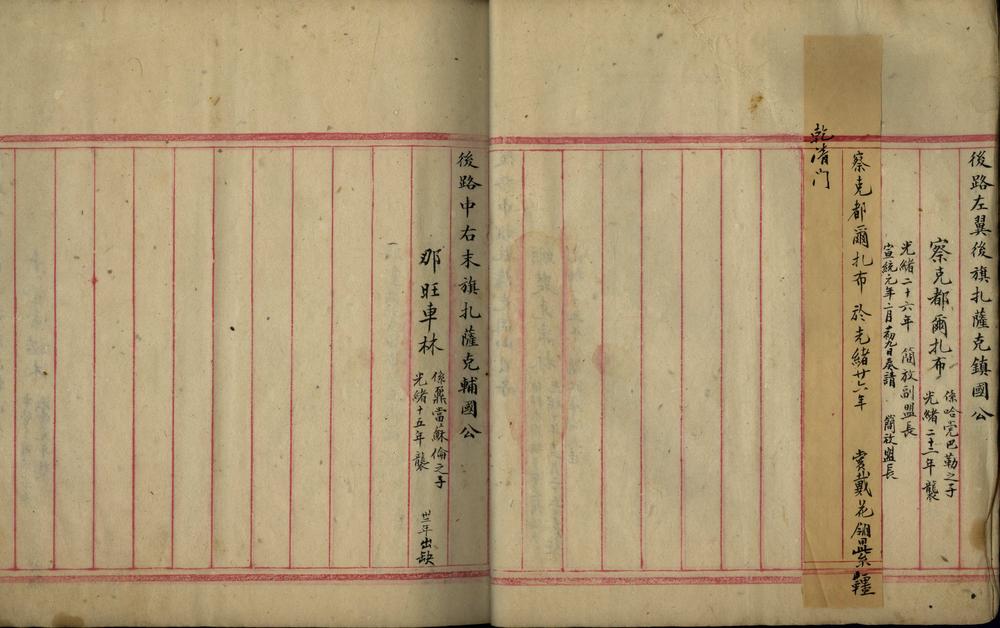 後路左翼後旗扎薩克鎮國公
察克都爾扎布
係哈党巴勒之子
光緒二十二年襲
光緒二十六年 簡放副盟長
宣統元年二月初九日奏請 簡放盟長
察克都爾扎布於光緒廿六年 賞戴花翎紫韁
乾清门
後路中右末旗扎薩克輔國公
那旺車林
係鼐當蘇倫之子
光緒十五年襲
卅三年出缺